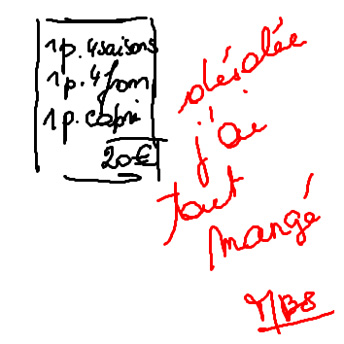 1 p. 4 saisons
1 p. 4 from
1 p. capri
20€
désolée
j'ai
tout
mangé
MBS